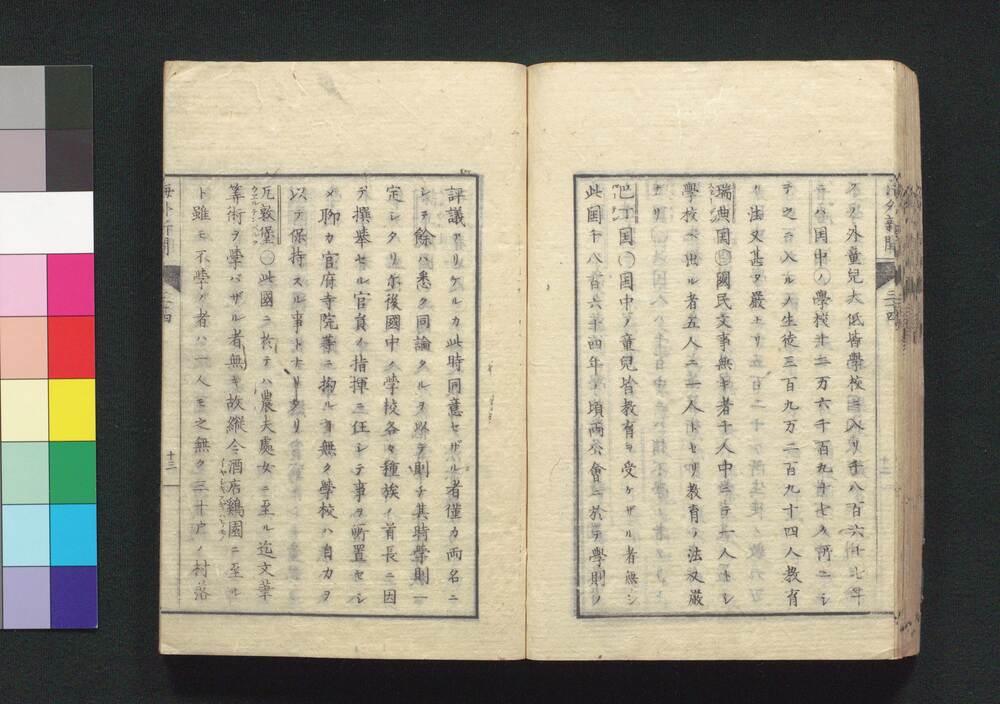 外童兒大低皆學校ニ入リ千八百六十七年
ニハ国中ノ學校十二万六千百九十七ヶ所ニシ
テ之ニ入ル人生徒三百九万二百九十四人教育
ノ法又甚タ嚴ナリ
瑞典国〇國民文事無キ者千人中ニテ一人トシ
學校ヘ出ル者五人ニ一人トセリ教育ノ法又嚴
ナリ
巴丁国〇国中ノ童兒皆教育ヲ受ケザル者無シ
此国千八百六十四年ノ頃両公會ニ於テ學則ノ
評議アリケルカ此時同意セザル者僅カ両名ニ
シテ餘ハ悉ク同論タルヲ以テ則チ其時學則一
定シタリ尓後國中ノ學校各々種族ノ首長ニ因
テ撰擧セル官員ノ指揮ニ任シテ事ヲ所置セシ
メ聊カ官府寺院等ニ拘ル事無ク學校ハ自カヲ
以テ保持スル事トナリタリ
瓦敦堡〇此國ニ於テハ農夫處女ニ至ル迄文筆
等術ヲ學バザル者無キ故縦令酒店鷄園ニ至ル
ト雖モ不學ノ者ハ一人モ之無ク三十户ノ村落
海外新聞
三四
十三